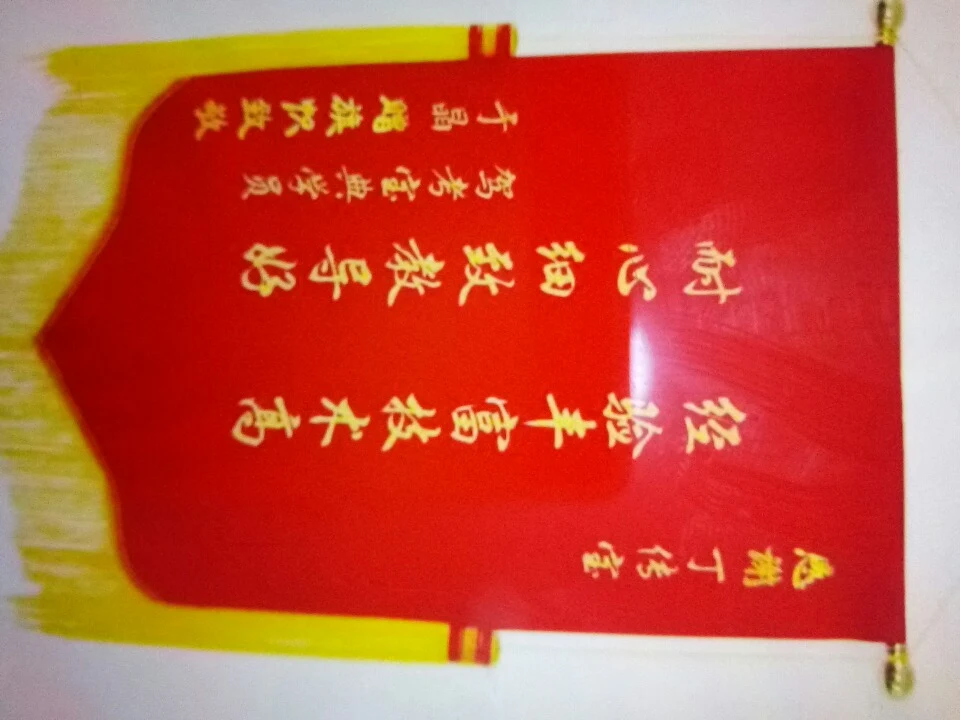 感谢丁传宝
经验丰富技术高
耐心细致教导好
驾考宝典学员
于晶 赠旗以致敬